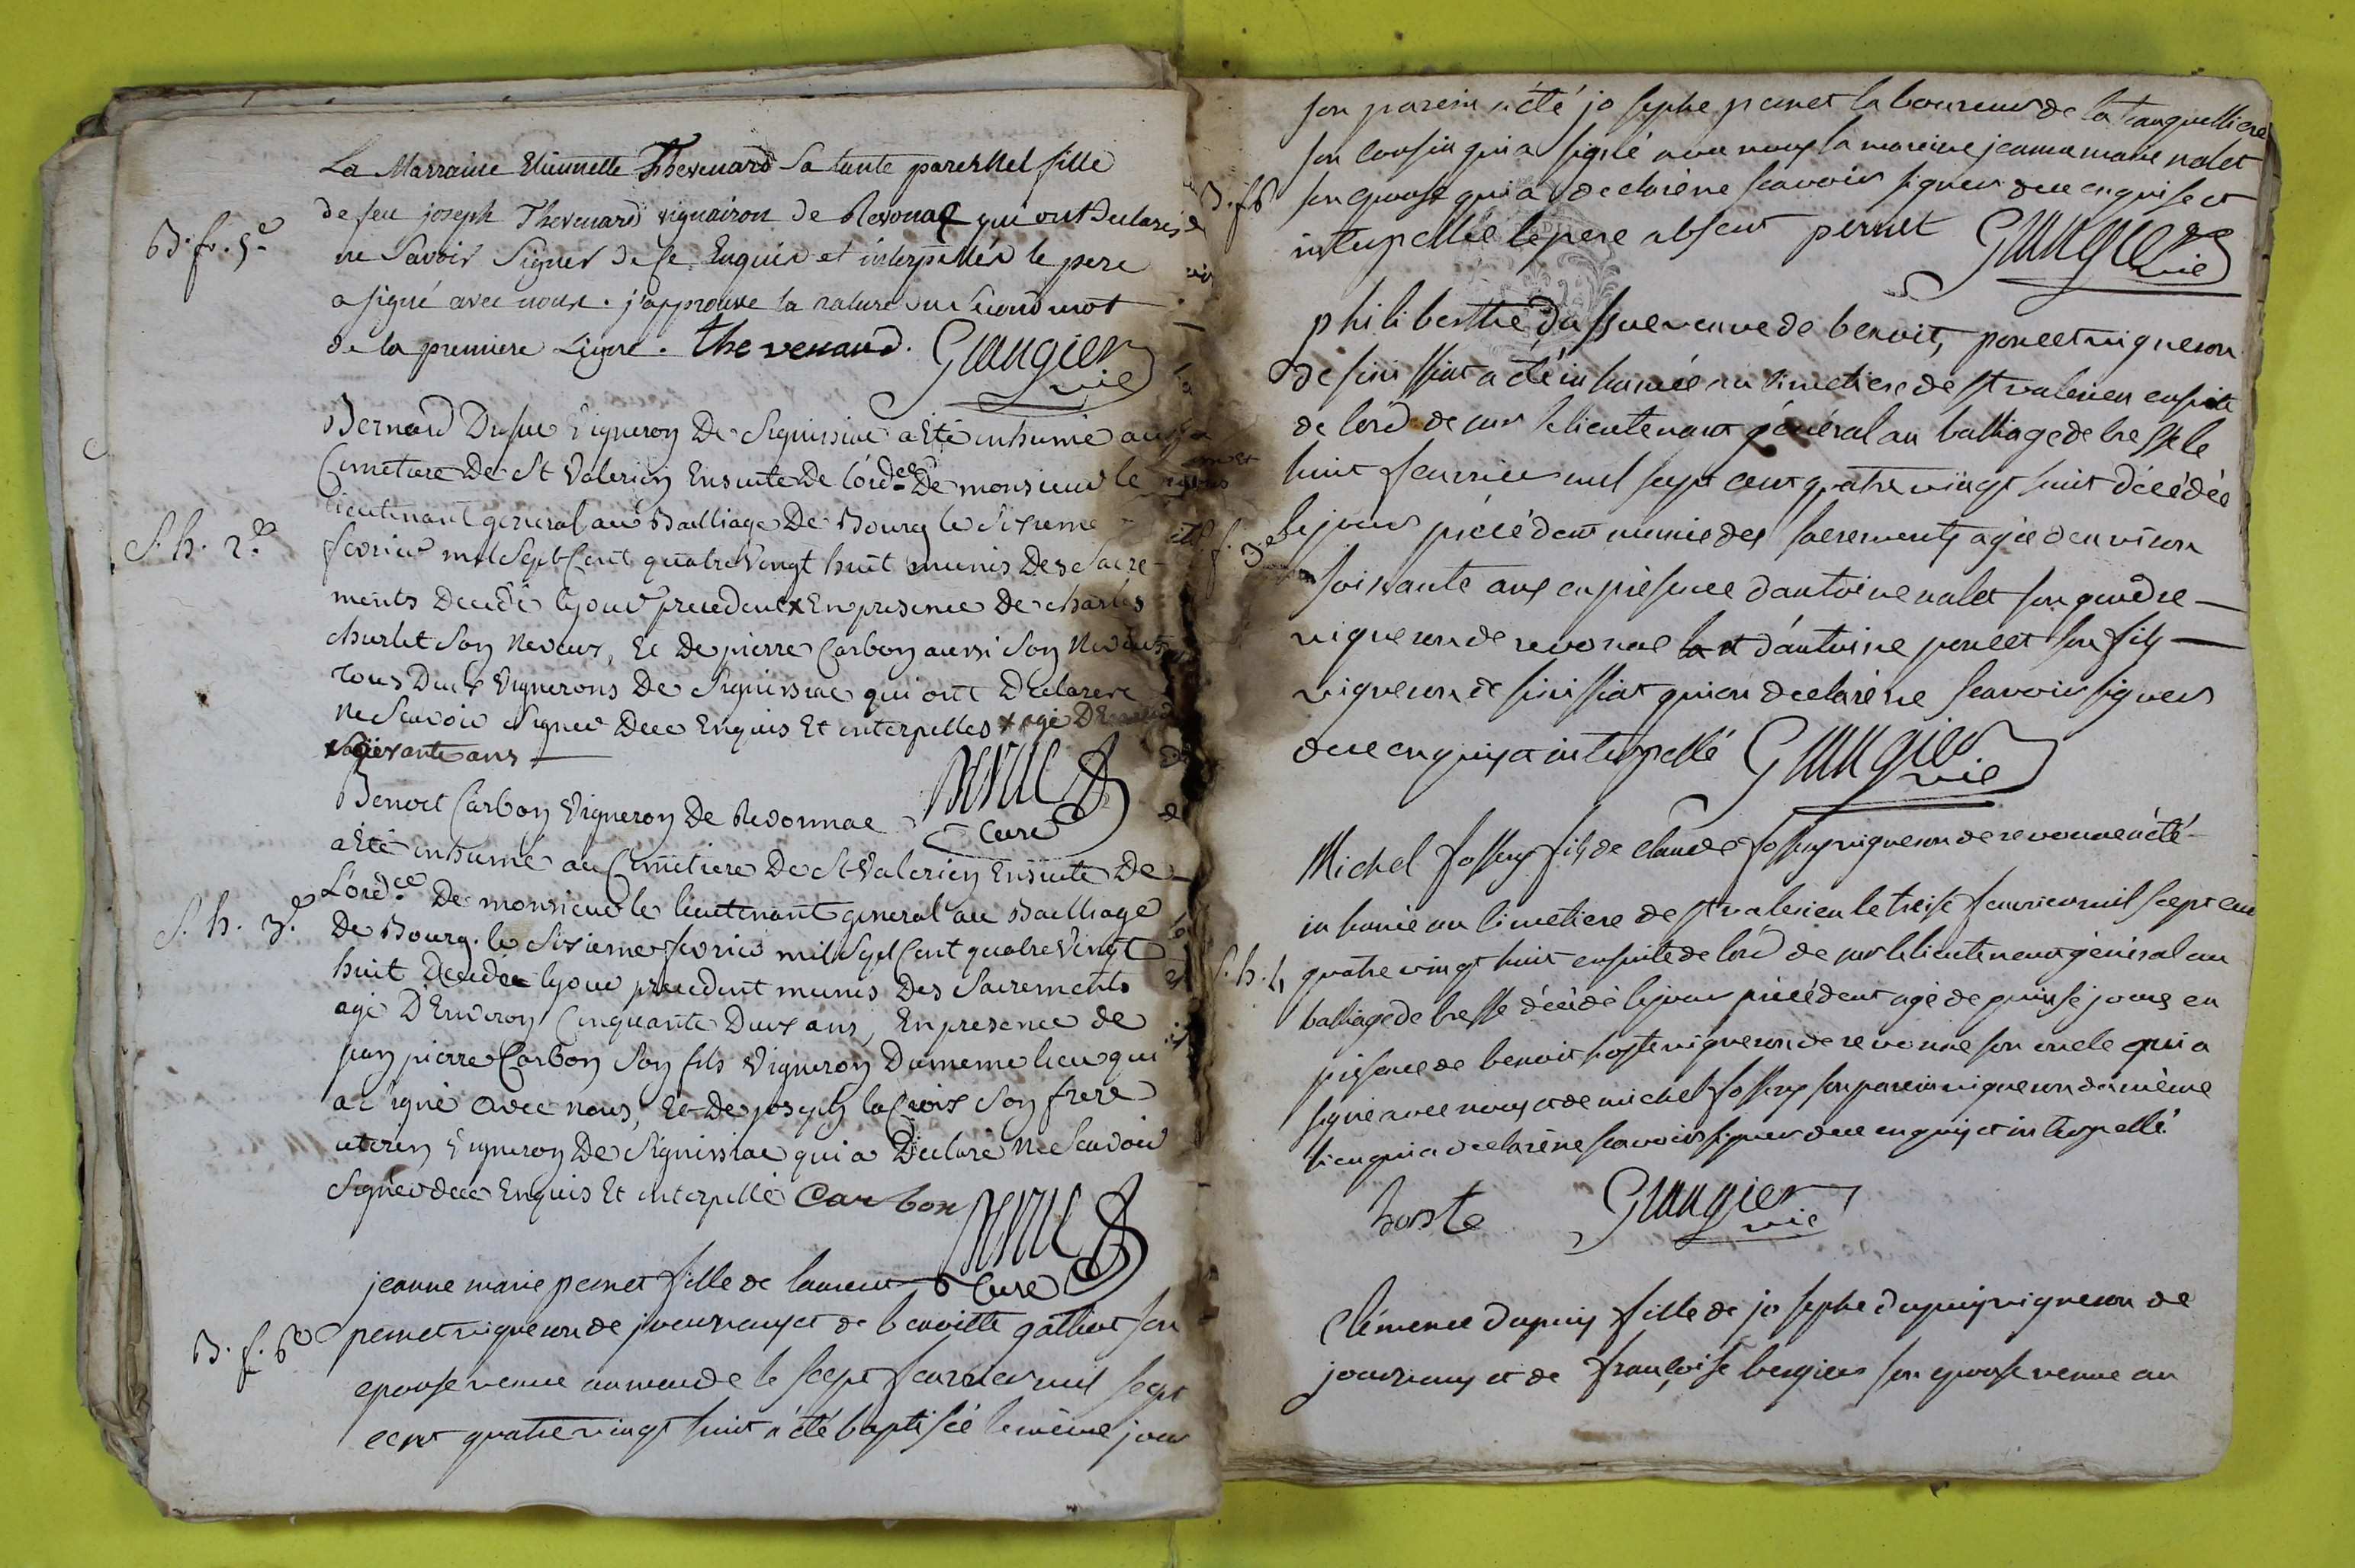 La Marraine Etiennette Thevenard Sa tante paternel fille
B. f. 5.e
de feu joseph Thevenard vigneiron de Revonaz qui ont declarés
ne Savoir Signer de ce Enquis et interpellés le pere
a signé avec nous. j'approuve la rature du Second mot
de la premiere Ligne. thevenard. Grangier vic
Bernard Dufue Vigneron De Signissiac a Eté inhumé au
Cimetiere De St Valerien Ensuite De L'ord.ce De monsieur le
S. h. 2.e
lieutenant general au Bailliage De Bourg le Sixieme
fevrier mil Sept Cent quatre Vingt huit munis Des Sacre-
ments Decedé le jour precedent x En presence De charles
churlet Son Neveux, Et De pierre Carbon aussi Son Neveux
tous Deux Vignerons De Signissiac qui ont Declarere
Ne Scavoir Signer Dece Enquis Et interpelles x agé D'Environ
soixante ans
Curé
Benoit Carbon Vigneron De Revonnac
a Eté inhumé au Cimetiere De St Valerien Ensuite De
S. h. 3.e
L'ord.ce De monsieur le lieutenant general au Bailliage
De Bourg. le Sixieme fevrier mil Sept Cent quatre Vingt
huit Decedé le jour precedent munis Des Sacrements
agé D'Environ Cinquante Deux ans, En presence de
jean pierre Carbon Son fils Vigneron Du meme lieu qui
a Signé avec nous, Et De joseph la Croix Son frere
uterin Vigneron De Signissiac qui a Declaré Ne Scavoir
Signer dece Enquis Et interpellé Carbon
Curé
jeanne marie pernet fille de laurent
B. f. 6e
pernet vigneron de journans et de benoitte galliot son
epouse venue au monde le sept fevrier mil sept
cent quatre vingt huit a été baptisée le même jour
son parein a été josephe pernet laboureur de la tanquelliere
son cousin qui a signé avec nous la mareine jeanne marie nalet
B. f 6
son epouse qui a declaré ne scavoir signer dece enquise et
interpellée le pere absent pernet Grangier vic
philiberthe dufsue veuve de benoit poncet vigneron
de sinissiat a été inhumée au cimetiere de st valerien ensuite
de lord de mr le lieutenant général au balliage de bresse le
huit fevrier mil sept cent quatre vingt huit décédée
le jour précédent munie des sacrements agée denviron
soissante ans en présence dantoine nalet son gendre
vigneron de revonac et d'antoine poncet son fils
vigneron de sinissiat qui on declaré ne scavoir signer
dece enquis et interpellé Grangier vic
Michel fossery fils de claude fossery vigneron de revonne a été
inhumé au cimetiere de st valerien le treise fevrier mil sept cent
S. h. 4
quatre vingt huit ensuite de lord de mr le lieutenant général au
balliage de bresse décédé le jour précédent agé de quinse jours en
présence de benoit hoste vigneron de revonne son oncle qui a
signé avec nous et de michel fossery son parein vigneron du même
lieu qui a declaré ne scavoir signer dece enquis et interpellé
hoste Grangier vic
Clémence dupuy fille de josephe dupuy vigneron de
journans et de françoise bergier son epouse venue au